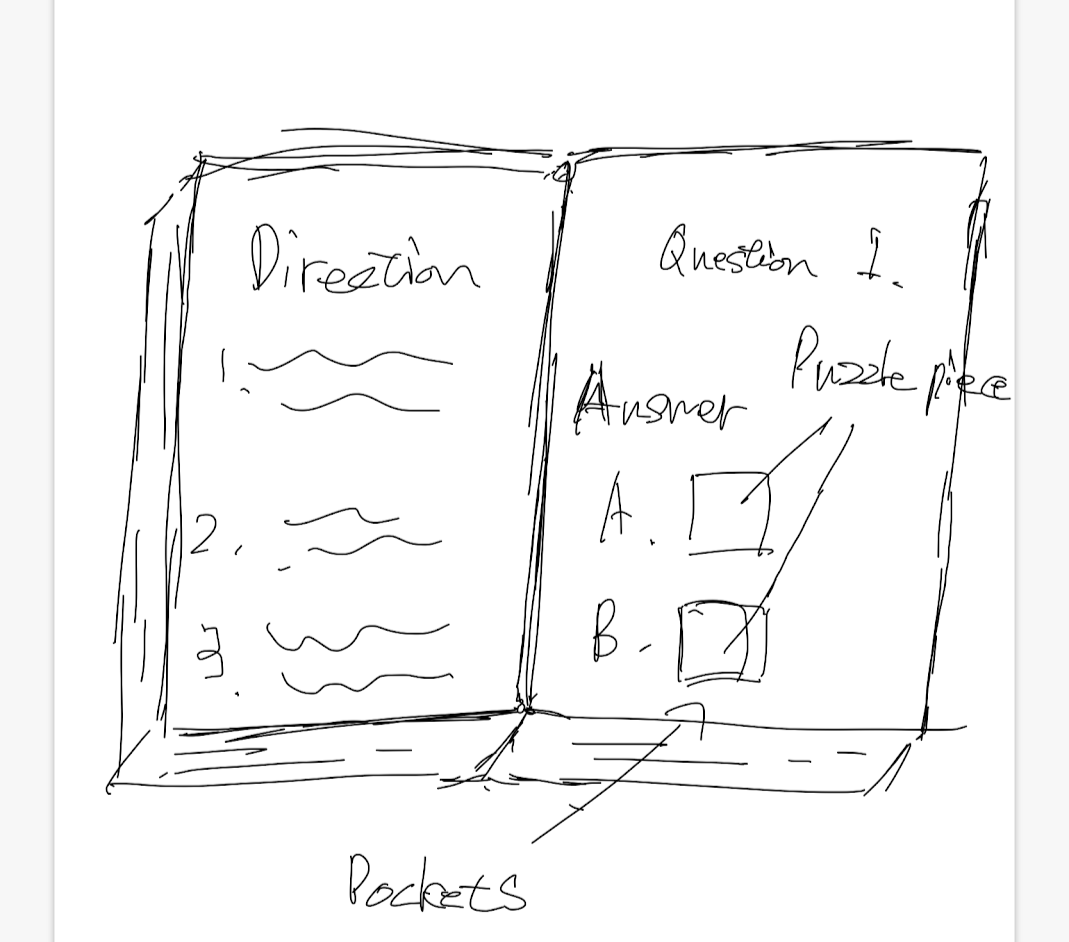 Direction
1.
2.
3.
Question 1.
Puzzle piece
Answer
A.
B.
Pockets